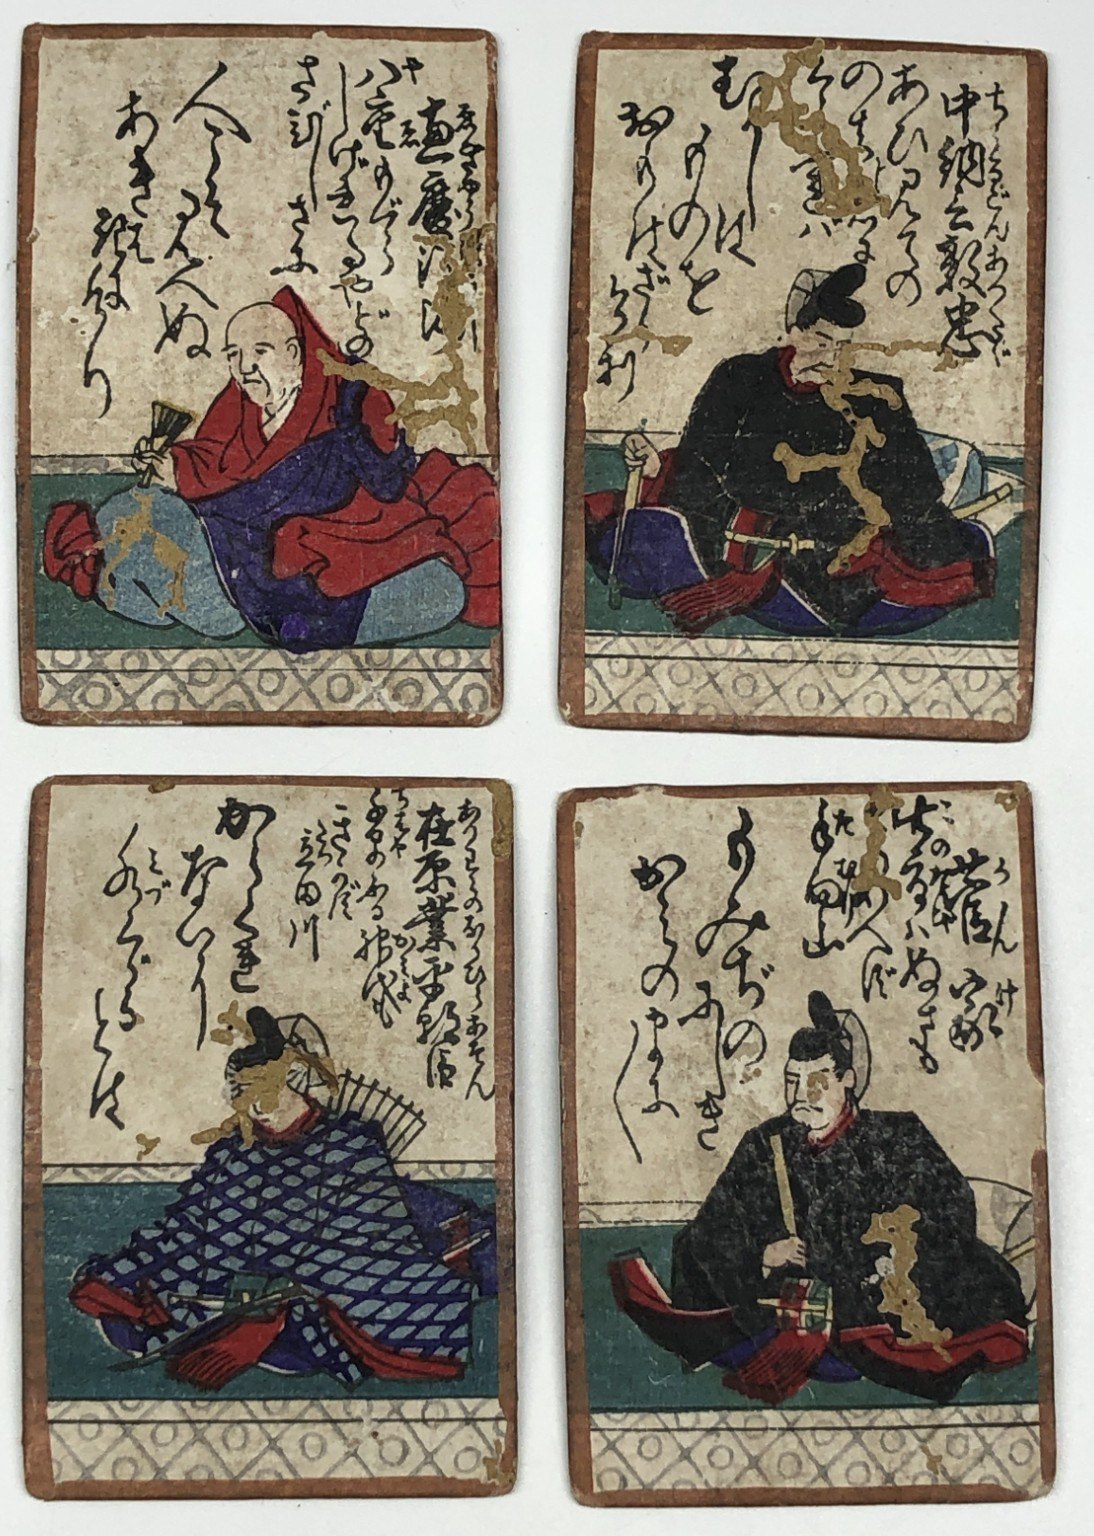 恵慶法師
八重むぐら
しげれるやどの
さびしさに
人こそ見へね
あきは
きにけり
ちうなごんあつただ
中納言敦忠
あひ見ての
のちの心に
くらぶれば
むかしは
ものを
おもはざ
りけり
ありわらのなりひらあそん
在原業平朝臣
千早ふる神代も
きかず
立田川
からくれ
ない
に
水くゞる
とは
かんけ
菅家
此たびはぬさも
とりあへず
手向山
もみぢの
にしき
かみの
まに〱